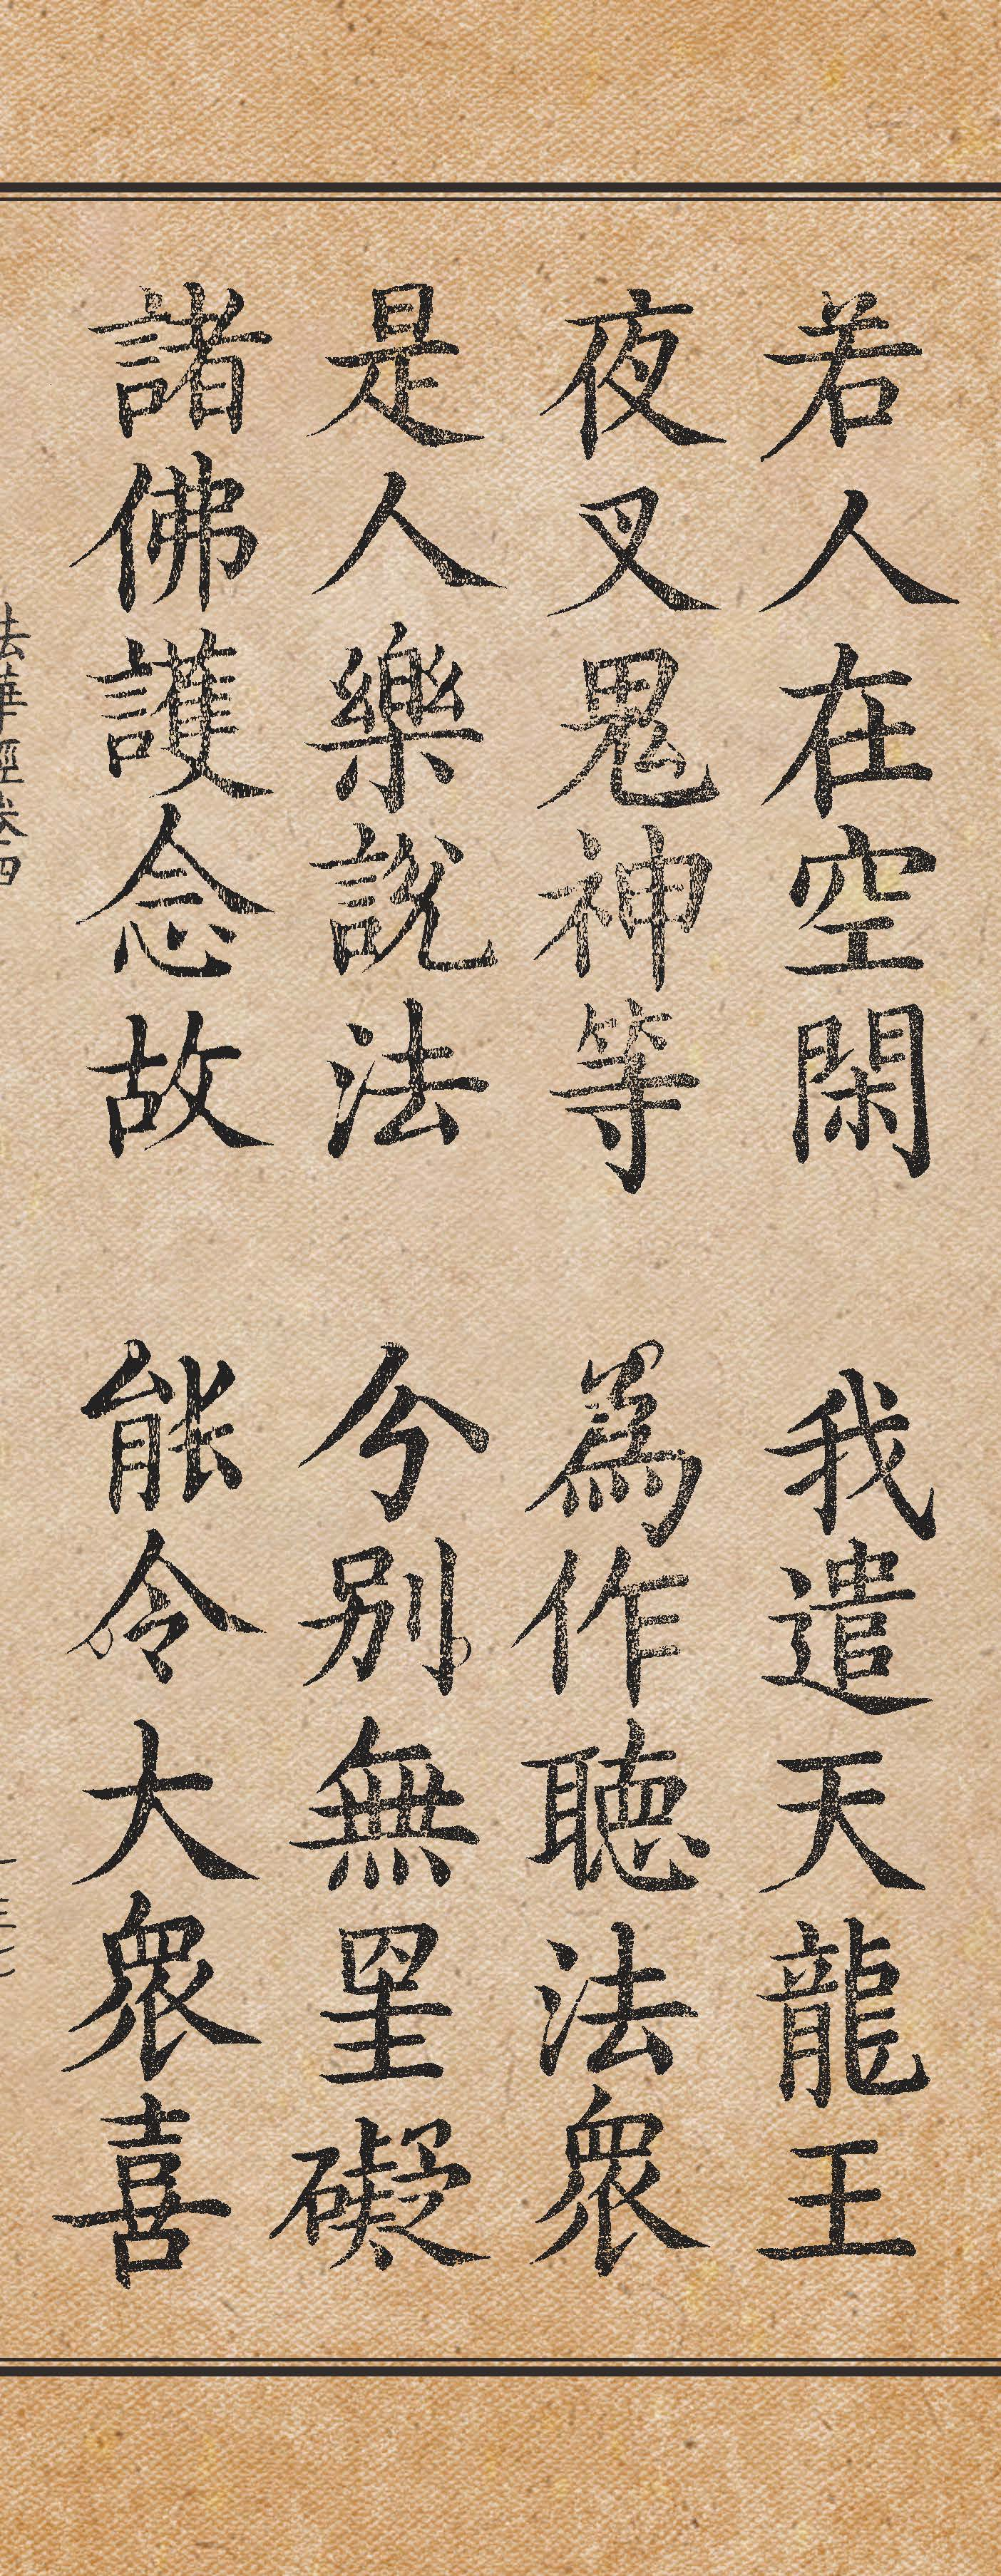 若人在空閑　我遣天龍王
夜叉鬼神等　為作聽法眾
是人樂說法　分別無罣礙
諸佛護念故　能令大眾喜
法華經卷四